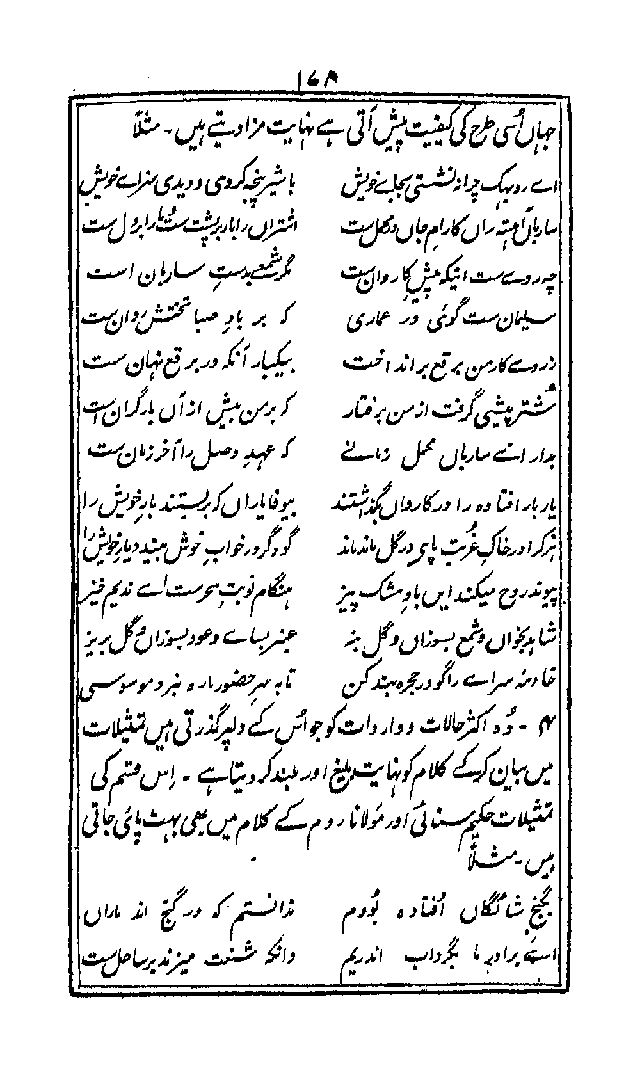 ۱۶۸
جہاں اُسی طرح کی کیفیت پیش آتی ہے نہایت مزا دیتے ہیں۔ مثلاً
اے روبہک چرا نہ نشستی بجاے خویش باشیر پنجہ کردی و دیدی سزاے خویش
ساربان آہستہ راں کارام جاں در محمل ست اشتراں را بار بر پشت ست و مارا بر دل ست
چہ روے ست اینکہ پیش کاروان ست مگر شمعے بدست ساربان است
سلیمان ست گوئی در عماری کہ بر باد صبا تختش روان ست
ز روے کار من برقع برانداخت بیکبار آنکہ در برقع نہان ست
شتر پیشی گرفت از من برفتار کہ بر من بیش ازاں بار گران است
بدار اے ساربان محمل زمانے کہ عہدِ وصل را آخر زمان ست
یار بار افتادہ را در کارواں بگذاشتند بیوفا یاراں کہ بربستند بارِ خویش را
ہر کرا در خاکِ غربت پای در گل ماند ماند گو دگر در خوابِ خوش بیند دیارِ خویش را
پیوند روح میکند ایں باد مشک بیز ہنگام نوبتِ سحرست اے ندیم خیز
شاہد بخواں و شمع بسوزاں و گل بنہ عنبر بساے و عود بسوزان و گل بریز
خادمہ سراے را گو در حجرہ بند کن تا بہ سرِ حضور ما رہ نبرد موسوسی
۴۔ وُہ اکثر حالات و واردات کو جو اُس کے دلپر گذرتی ہیں تمثیلات
میں بیان کرکے کلام کو نہایت بلیغ اور بلند کر دیتا ہے۔ اِس قسم کی
تمثیلات حکیم سنائی اور مولانا روم کے کلام میں بھی بہت پائی جاتی
ہیں۔ مثلاً
بگنجِ شائگاں افتادہ بُودم ندانستم کہ در گنج اند ماراں
اے برادر ما بگرداب اندریم وانکہ شنعت میزند بر ساحل ست